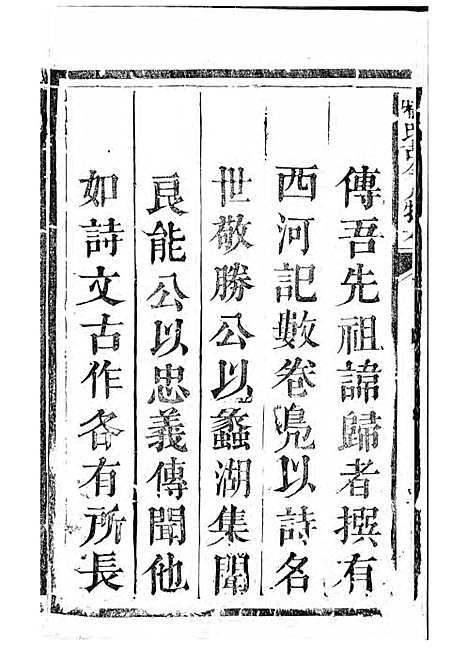 傳吾先祖諱歸者撰有
西河記數卷鳧以詩名
世敬勝公以蠡湖集聞
良能公以忠義傳聞他
如詩文古作各有所長